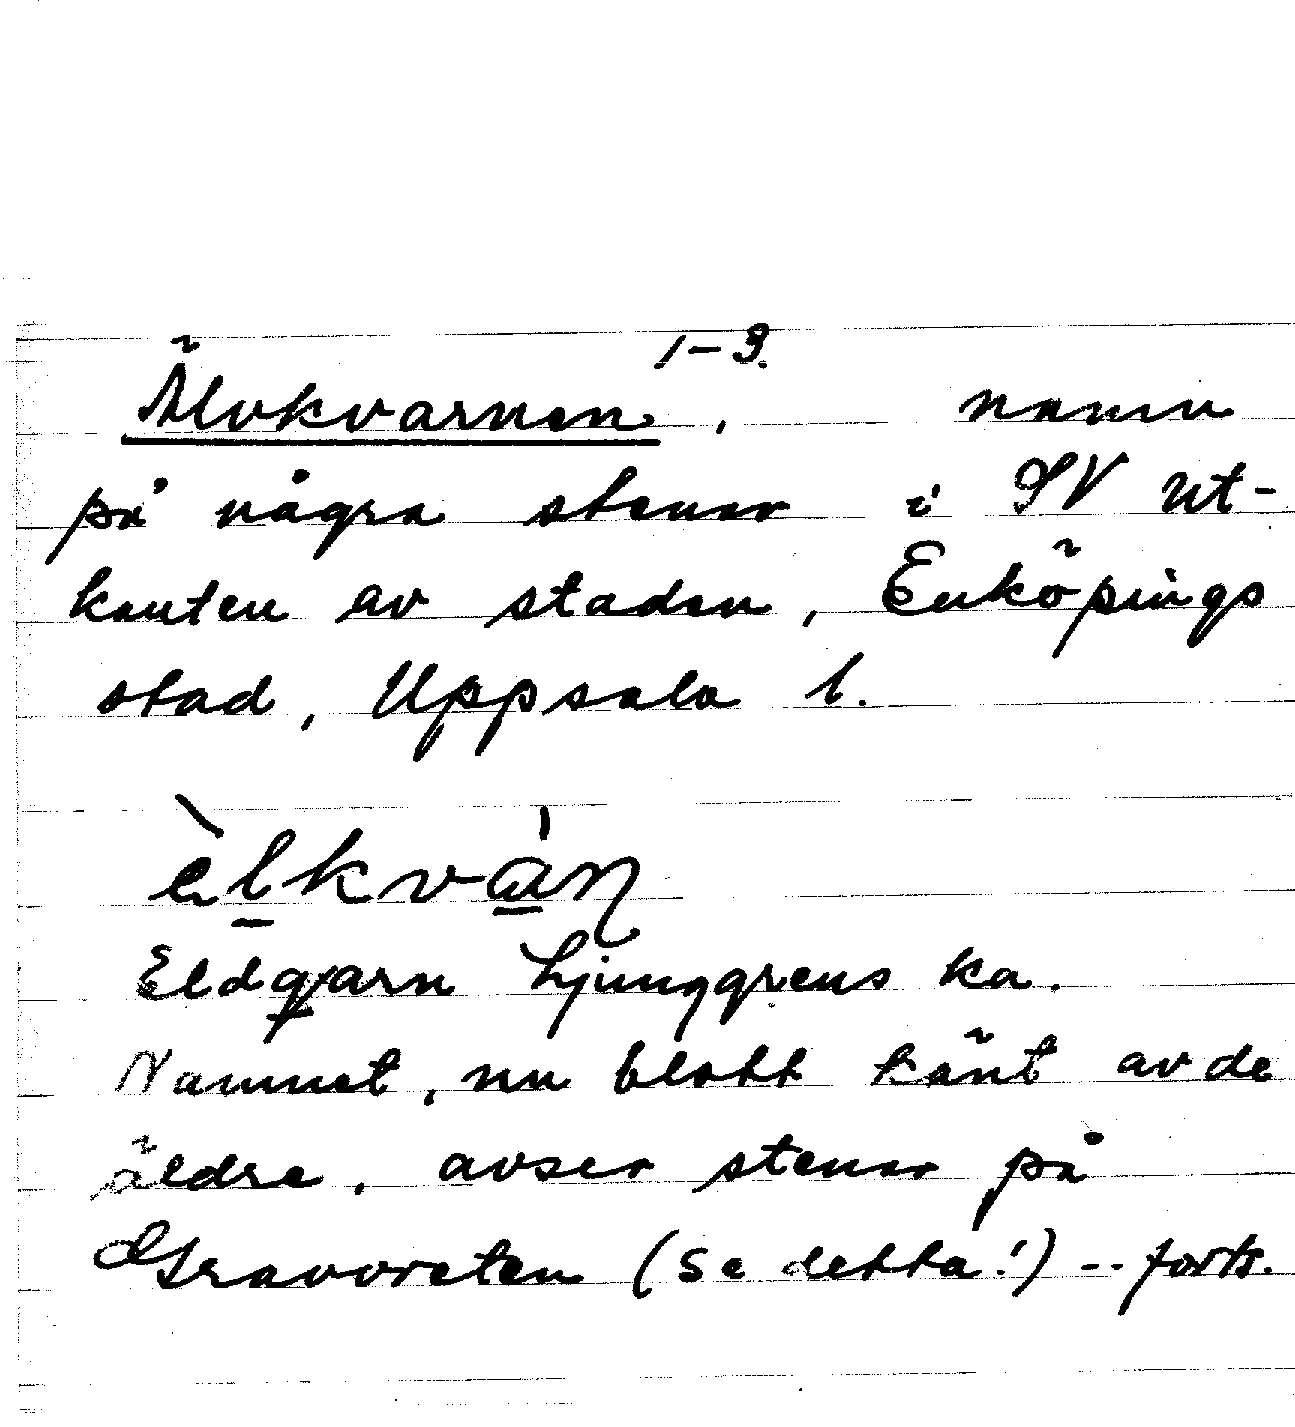 Älvkvarnen 1-3. , namn
på några stenar i SV ut-
kanten av staden, Enköpings
stad, Uppsala l.
èlkvàn
Eldgarn Ljunggrens ka.
Namnet, nu blott känt av de
äldre, avser stenar på
Gravvreten (se detta!) -- forts.